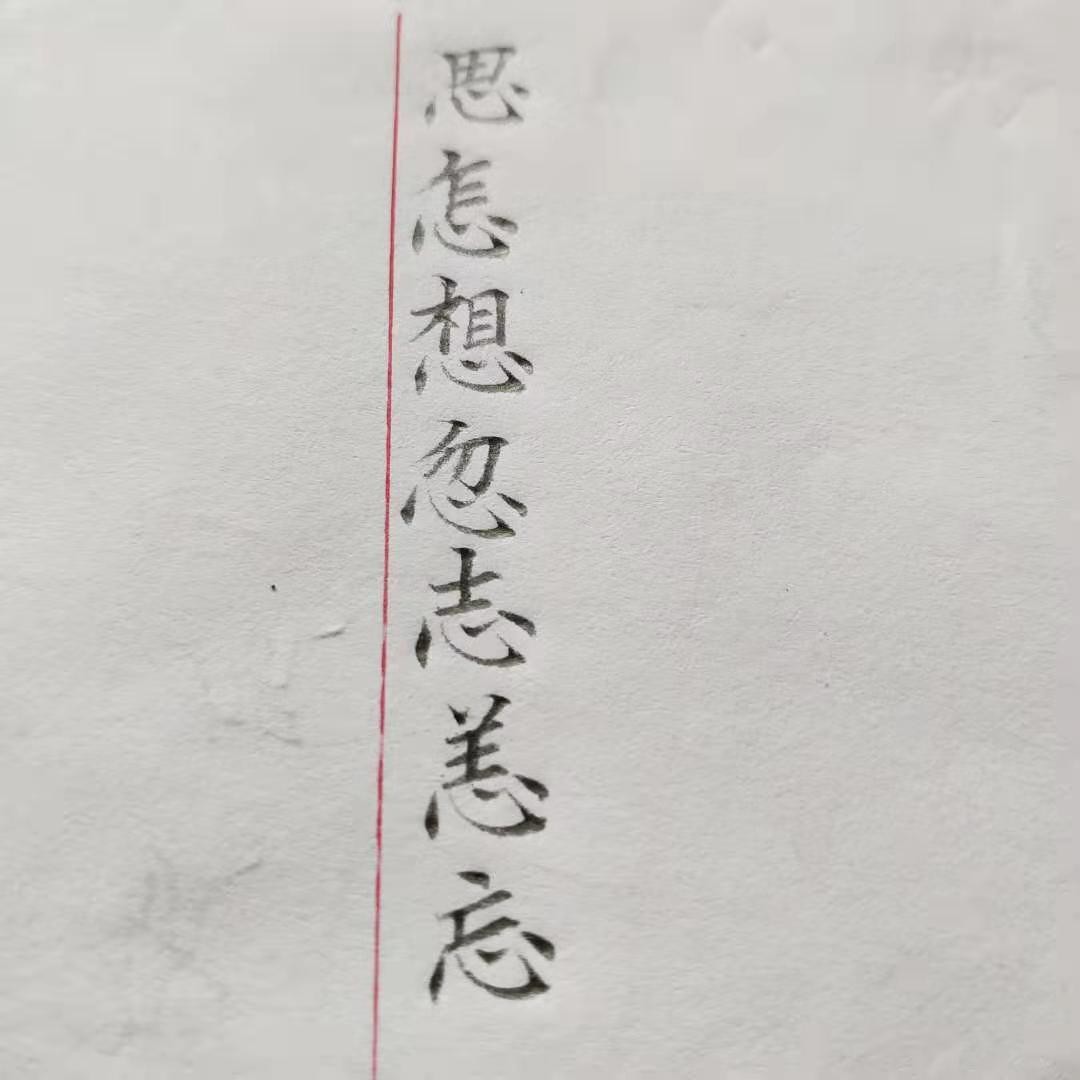 思怎想忽志恙忘